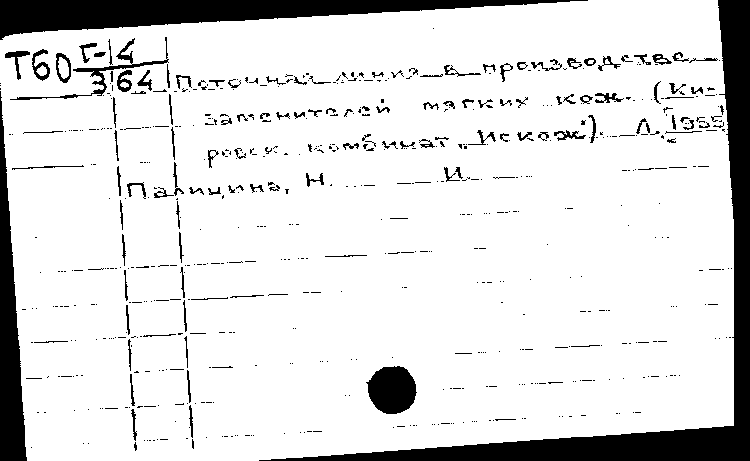 Т60 Г-4
3 64
Поточная линия в производстве
заменителей мягких кож. (Ки-
ровск. комбинат „Искож“). Л. [1955]
Палицина, Н. И.